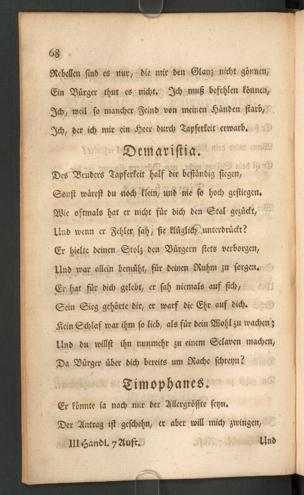 68
Rebellen sind es nur, die mir den Glanz nicht gönnen,
Ein Bürger thut es nicht. Ich muß befehlen können,
Ich, weil so mancher Feind von meinen Händen starb,
Ich, der ich mir ein Heer durch Tapferkeit erwarb.
Demaristia.
Des Bruders Tapferkeit half dir beständig siegen,
Sonst wärest du noch klein, und nie so hoch gestiegen.
Wie oftmals hat er nicht für dich den Stal gezückt,
Und wenn er Fehler sah, sie klüglich unterdrückt?
Er hielte deinen Stolz den Bürgern stets verborgen,
Und war allein bemüht, für deinen Ruhm zu sorgen.
Er hat für dich gelebt, er sah niemals auf sich,
Sein Sieg gehörte dir, er warf die Ehr auf dich.
Kein Schlaf war ihm so lieb, als für dein Wohl zu wachen;
Und du willst ihn nunmehr zu einem Sclaven machen,
Da Bürger über dich bereits um Rache schreyn?
Timophanes.
Er könnte ja nach mir der Allergrößte seyn.
Der Antrag ist geschehn, er aber will mich zwingen,
III Handl. 7 Auft. Und